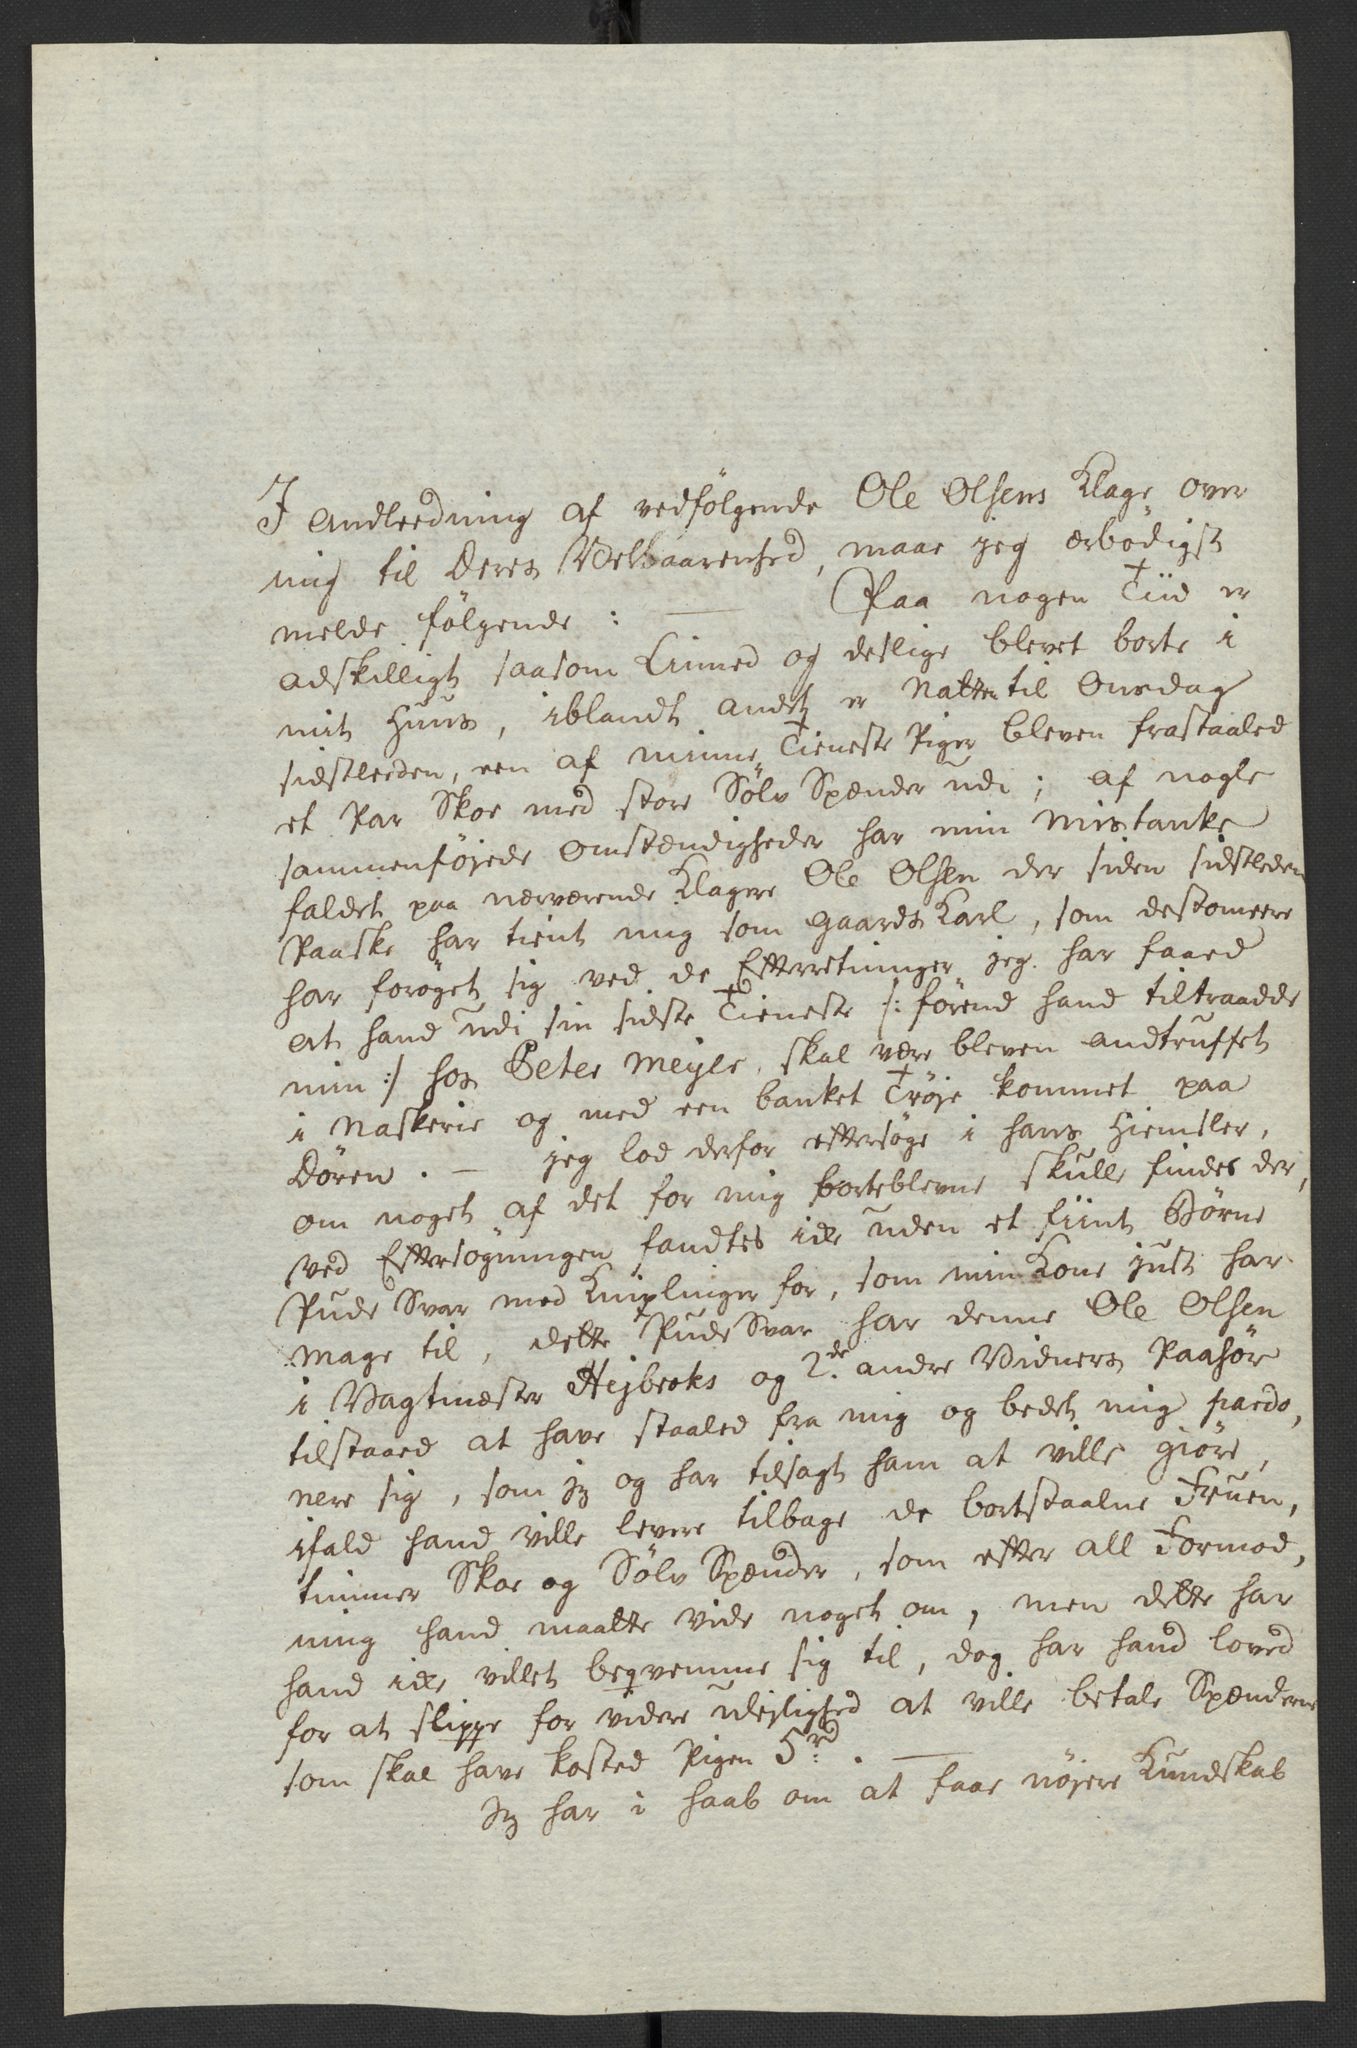 I Andleedning af vedfölgende Ole Olsens Klage over
mig til Deres Velbaarenhed, maae jeg ærbödigst
melde følgende : — Paa nogen Tiid er
adskilligt saasom Linned og deslige blevet borte i
mit Huus, iblandt andet er Natten til Onsdag
sidstleeden, een af minne Tieneste Piger bleven frastaaled
et Par Skoe med store Sölv Spænder udi; af nogle
sammenföjede Omstændigheder har min Mistanke
faldet paa nærværende Klagere Ole Olsen der siden sidstleden
Paaske har tient mig som Gaards Karl, som destomeere
har foröget sig ved de Efterretninger jeg har faaed
at hand udi sin sidste Tieneste /: förend hand tiltraadde
min :/ hos Peter Meyer, skal være bleven andtruffet
i Naskerie og med een banket Tröje kommet paa
Dören. — jeg lod derfor eftersöge i hans Hiemsler,
om noget af det for mig borteblevne skulle findes der,
ved Eftersögningen fandtes icke uden et fiint Börne
Pude Svar med Kniplinger for, som min Kone just har
Mage til, dette Pude Svar har denne Ole Olsen
i Vagtmæster Hejbroks og 2de andre Vidners Paahör
tilstaaed at have staaled fra mig og bedet mig pardo,
nere sig, som jeg og har tilsagt ham at ville giöre,
ifald hand ville levere tilbage de bortstaalne Fruen,
timmer Skoe og Sölv Spænder, som efter all Formod,
ning hand maatte vide noget om, men dette har
hand icke villet beqvemme sig til, dog har hand loved
for at slippe for videre uleylighed at ville betale Spænderne
som skal have kosted Pigen 5 rd. —
jeg har i Haab om at faae nöjere Kundskab